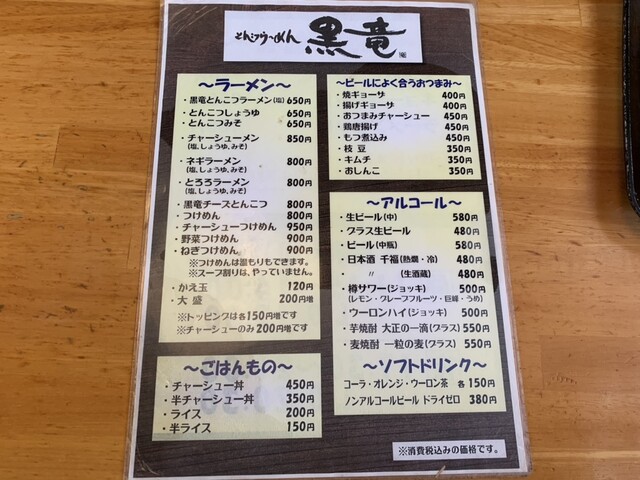 とんこつらーめん 黒竜
〜ラーメン〜
・黒竜とんこつラーメン(塩) 650円
・とんこつしょうゆ 650円
・とんこつみそ 650円
・チャーシューメン 850円
(塩,しょうゆ,みそ)
・ネギラーメン 800円
(塩,しょうゆ,みそ)
・とろろラーメン 800円
(塩,しょうゆ,みそ)
・黒竜チーズとんこつ 800円
・つけめん 800円
・チャーシューつけめん 950円
・野菜つけめん 900円
・ねぎつけめん 900円
※つけめんは温もりもできます。
※スープ割りは、やっていません。
・かえ玉 120円
・大 盛 200円増
※トッピングは各150円増です
※チャーシューのみ200円増です
〜ごはんもの〜
・チャーシュー丼 450円
・半チャーシュー丼 350円
・ライス 200円
・半ライス 150円
〜ビールによく合うおつまみ〜
・焼ギョーザ 400円
・揚げギョーザ 400円
・おつまみチャーシュー 450円
・鶏唐揚げ 450円
・もつ煮込み 450円
・枝 豆 350円
・キムチ 350円
・おしんこ 350円
〜アルコール〜
・生ビール(中) 580円
・グラス生ビール 480円
・ビール(中瓶) 580円
・日本酒 千福(熱燗・冷) 480円
・ 〃 (生酒蔵) 480円
・樽サワー(ジョッキ) 500円
(レモン・グレープフルーツ・巨峰・うめ)
・ウーロンハイ(ジョッキ) 500円
・芋焼酎 大正の一滴(グラス) 550円
・麦焼酎 一粒の麦(グラス) 550円
〜ソフトドリンク〜
コーラ・オレンジ・ウーロン茶 各150円
ノンアルコールビール ドライゼロ 380円
※消費税込みの価格です。